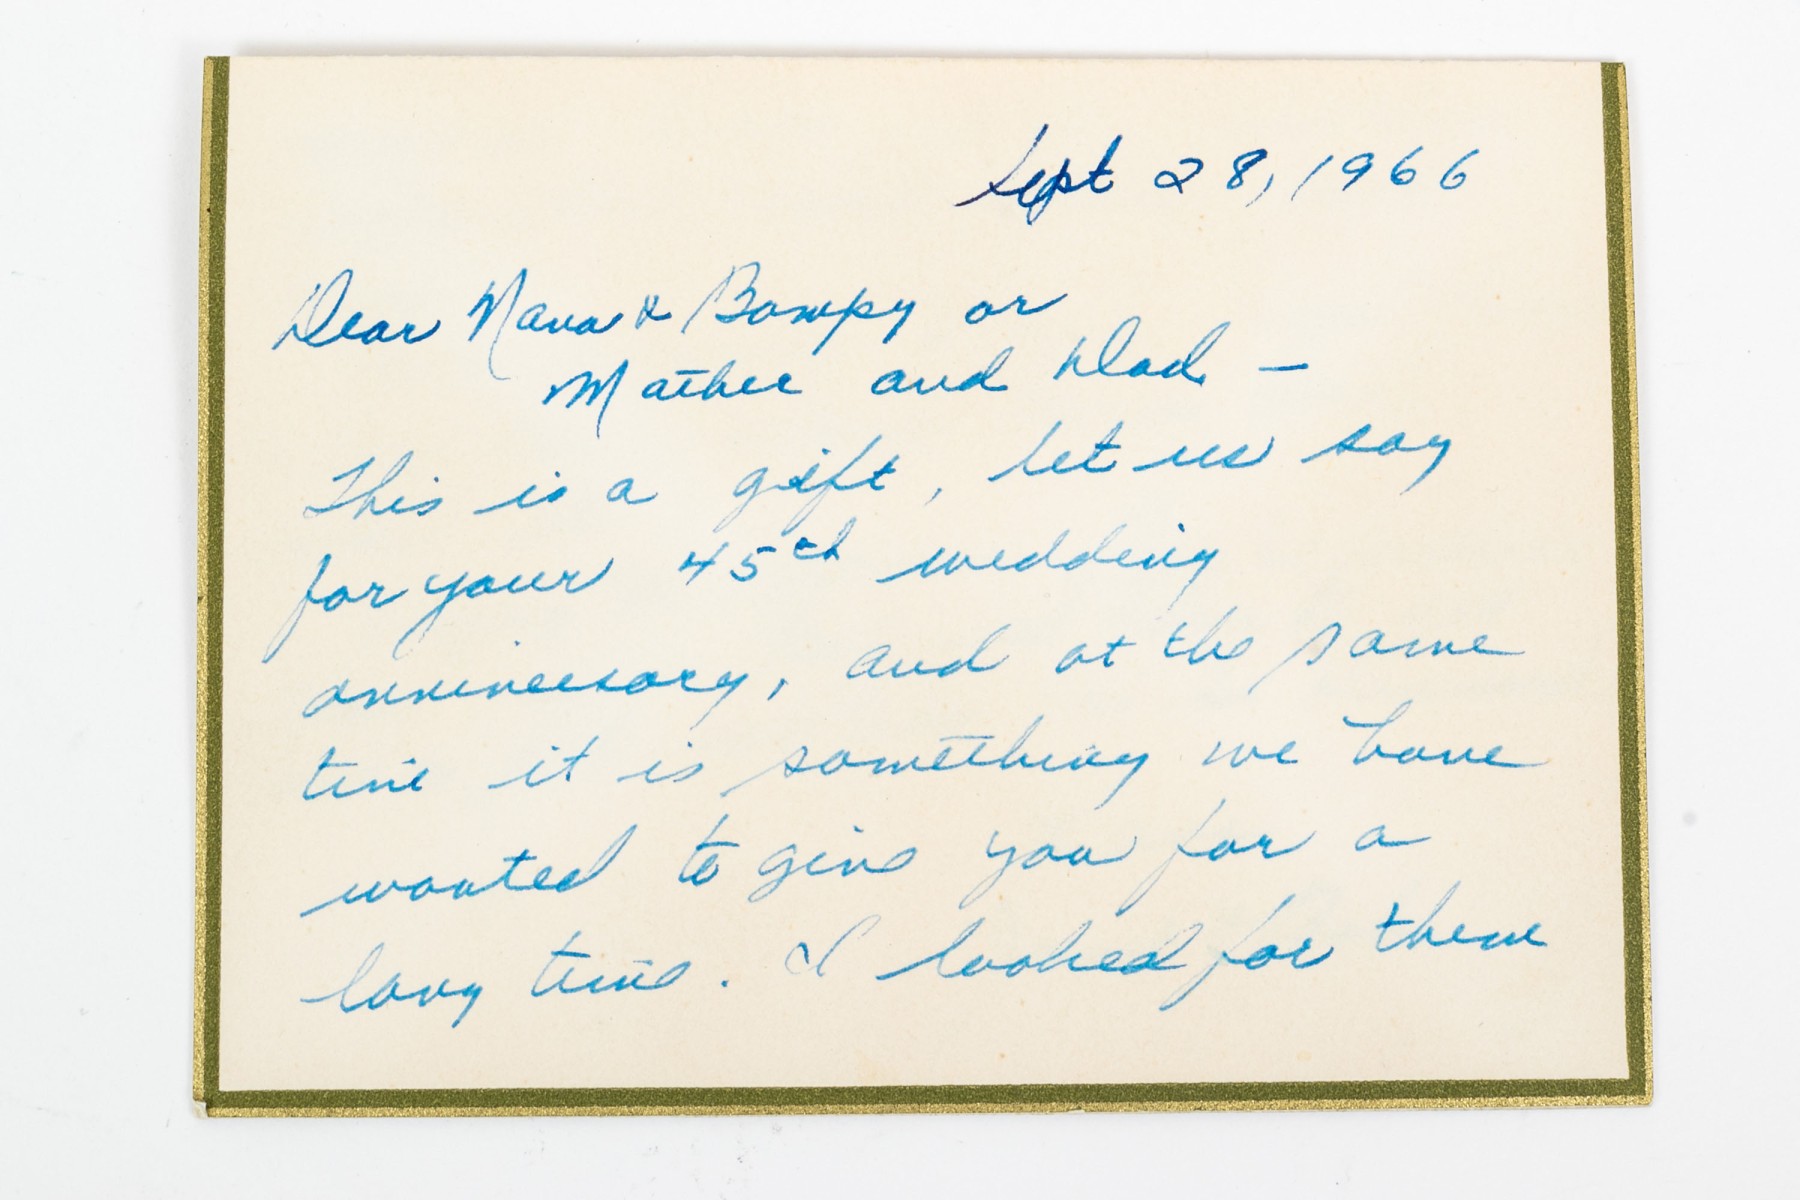 Sept 28, 1966
Dear Nana & Bompy or
Mother and Dad -
This is a gift, let us say
for your 45th wedding
anniversary, and at the same
time it is something we have
wanted to give you for a
long time. I looked for them